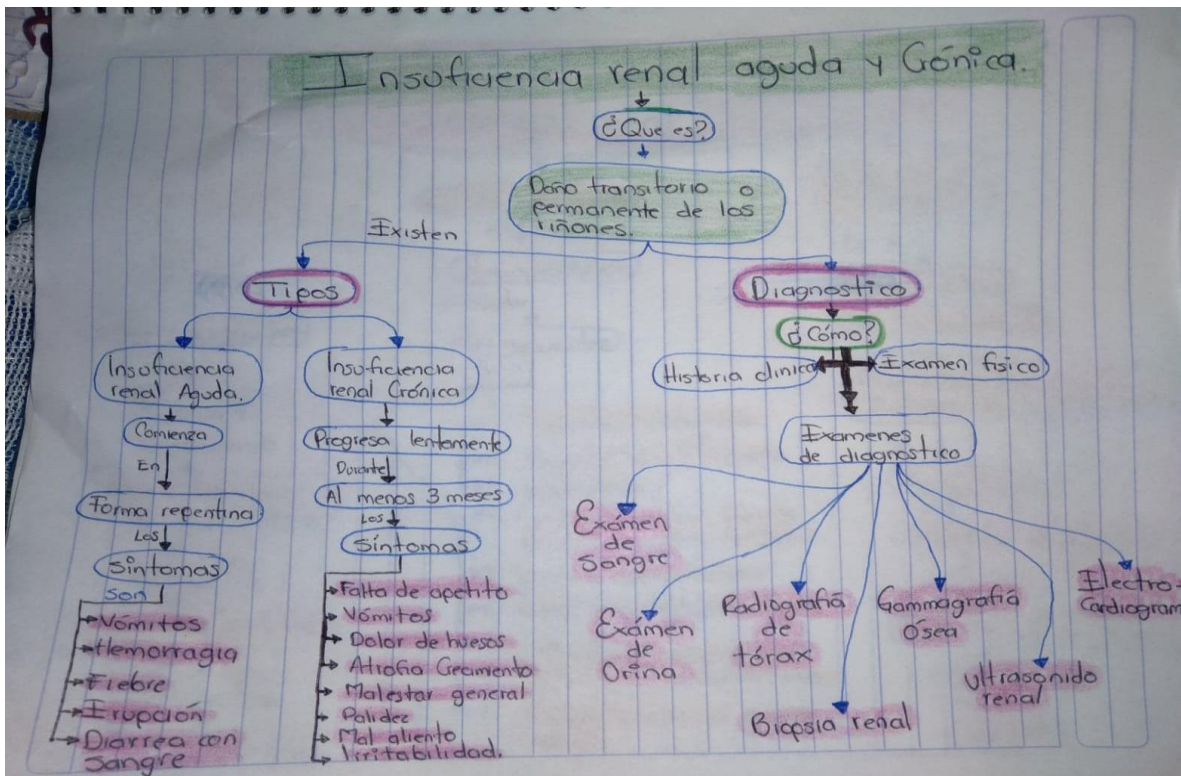 Insuficiencia renal aguda y Crónica.
¿Que es?
Daño transitorio o
permanente de los
riñones.
Existen
Tipos
Insuficiencia
renal Aguda.
Comienza
En
Forma repentina
Los
Síntomas
son
Vómitos
Hemorragia
Fiebre
Erupción
Diarrea con
Sangre
Insuficiencia
renal Crónica
Progresa lentamente
Durante
Al menos 3 meses
Los
Síntomas
Falta de apetito
Vómitos
Dolor de huesos
Atrofia Crecimiento
Malestar general
Palidez
Mal aliento
Irritabilidad.
Diagnostico
¿Cómo?
Historia clinica
Examen fisico
Examenes
de diagnóstico
Exámen
de
Sangre
Exámen
de
Orina
Radiografiá
de
tórax
Biopsia renal
Gammagrafiá
Ósea
ultrasonido
renal
Electro-
Cardiogram